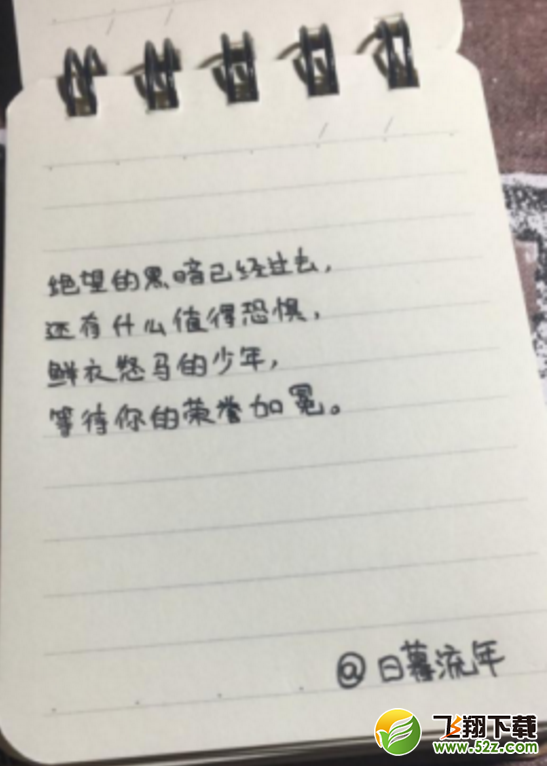 绝望的黑暗已经过去，
还有什么值得恐惧，
鲜衣怒马的少年，
等待你的荣誉加冕。
@日暮流年
飞翔下载
www.52z.com